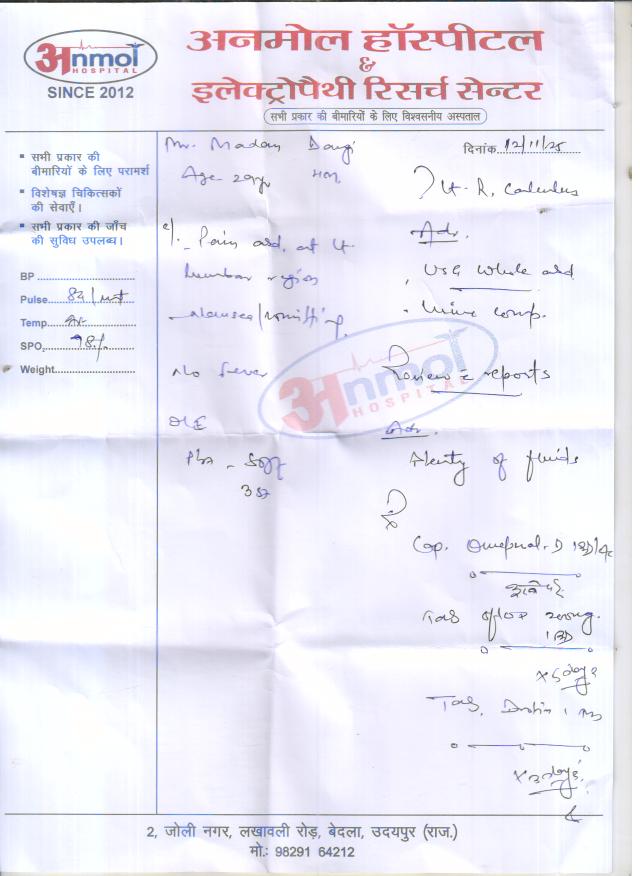 अnmol
HOSPITAL
SINCE 2012
अनमोल हॉस्पीटल
&
इलेक्ट्रोपैथी रिसर्च सेन्टर
सभी प्रकार की बीमारियों के लिए विश्वसनीय अस्पताल
▪ सभी प्रकार की
बीमारियों के लिए परामर्श
▪ विशेषज्ञ चिकित्सकों
की सेवाएँ।
▪ सभी प्रकार की जाँच
की सुविध उपलब्ध।
BP
Pulse 84/mt
Temp
SPO2 98%
Weight
Mr. Madan Dangi
दिनांक 12/11/25
Age 29yr
? Lt. R. Calculus
c/o Pain abd. at Lt
lumbar region
- Nausea/vomiting
No fever
O/E
P/A - Soft
Adv.
USG Whole abd
Urine comp.
अnmol
HOSPITAL
Review c reports
Adv.
Plenty of fluids
Rx
Cap. Omeprol-D 1BD/
Tab oflox 200mg.
1BD
x 5 days
Tab.
x 3 days
2, जोली नगर, लखावली रोड़, बेदला, उदयपुर (राज.)
मो.: 98291 64212